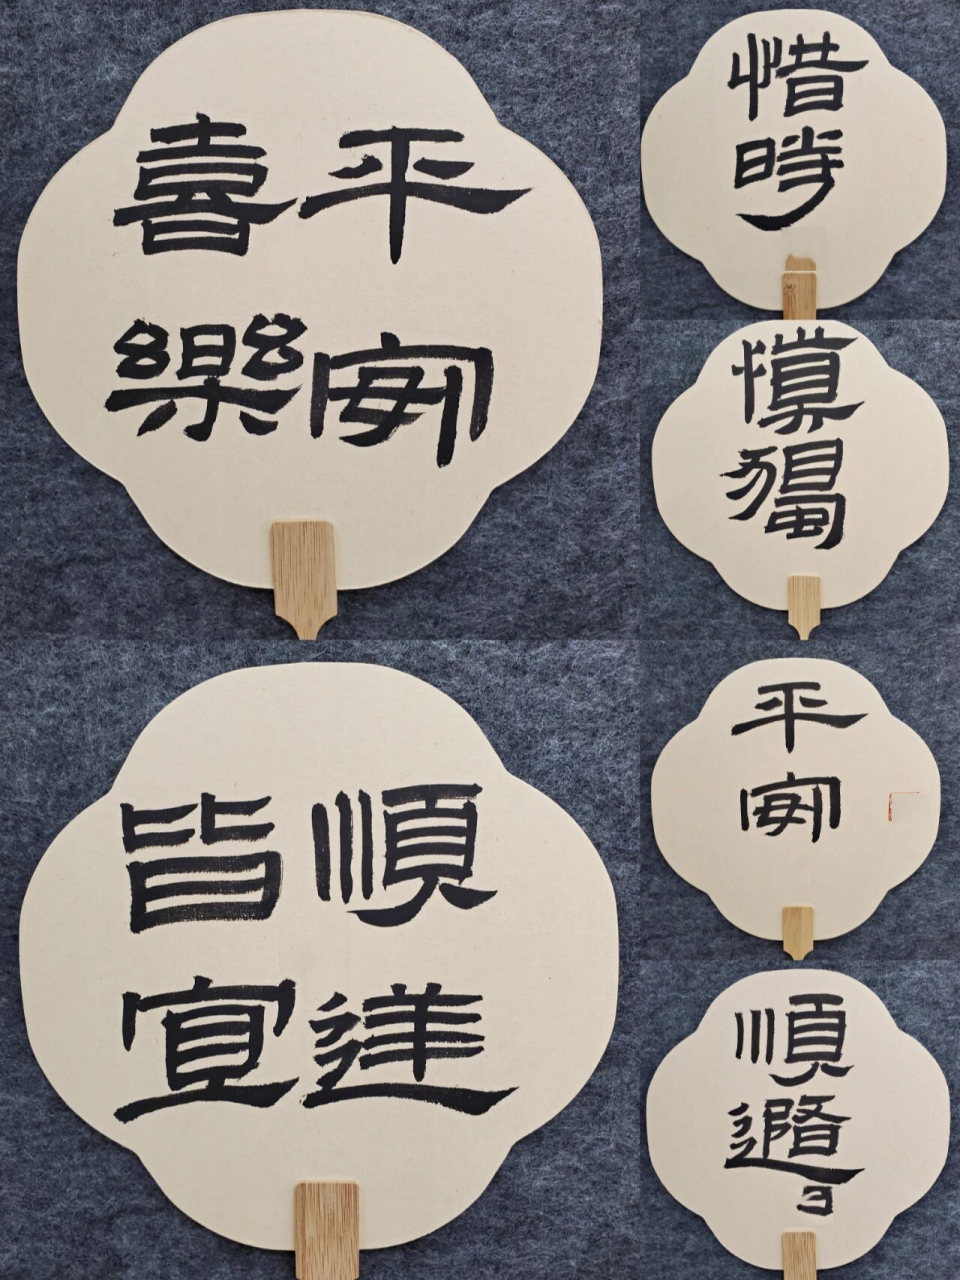 平安
喜樂
惜時
慎獨
順達
皆宜
平安
順